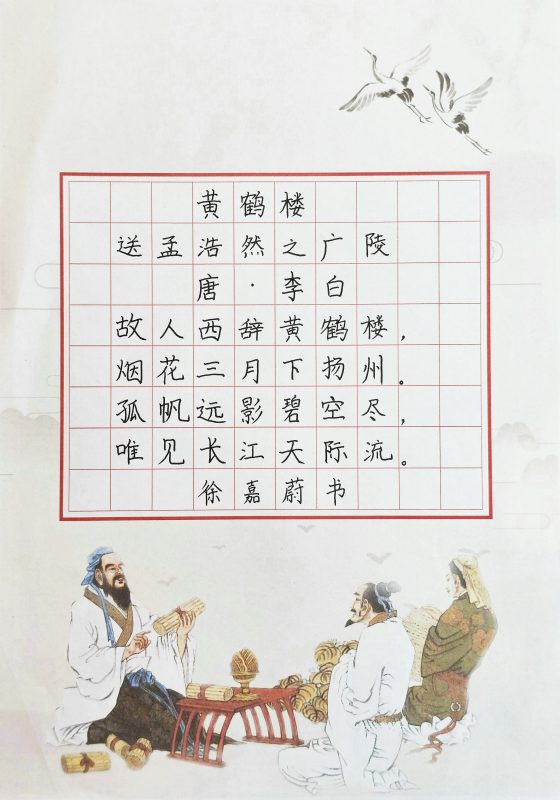 黄鹤楼
送孟浩然之广陵
唐·李白
故人西辞黄鹤楼，
烟花三月下扬州。
孤帆远影碧空尽，
唯见长江天际流。
徐嘉蔚书